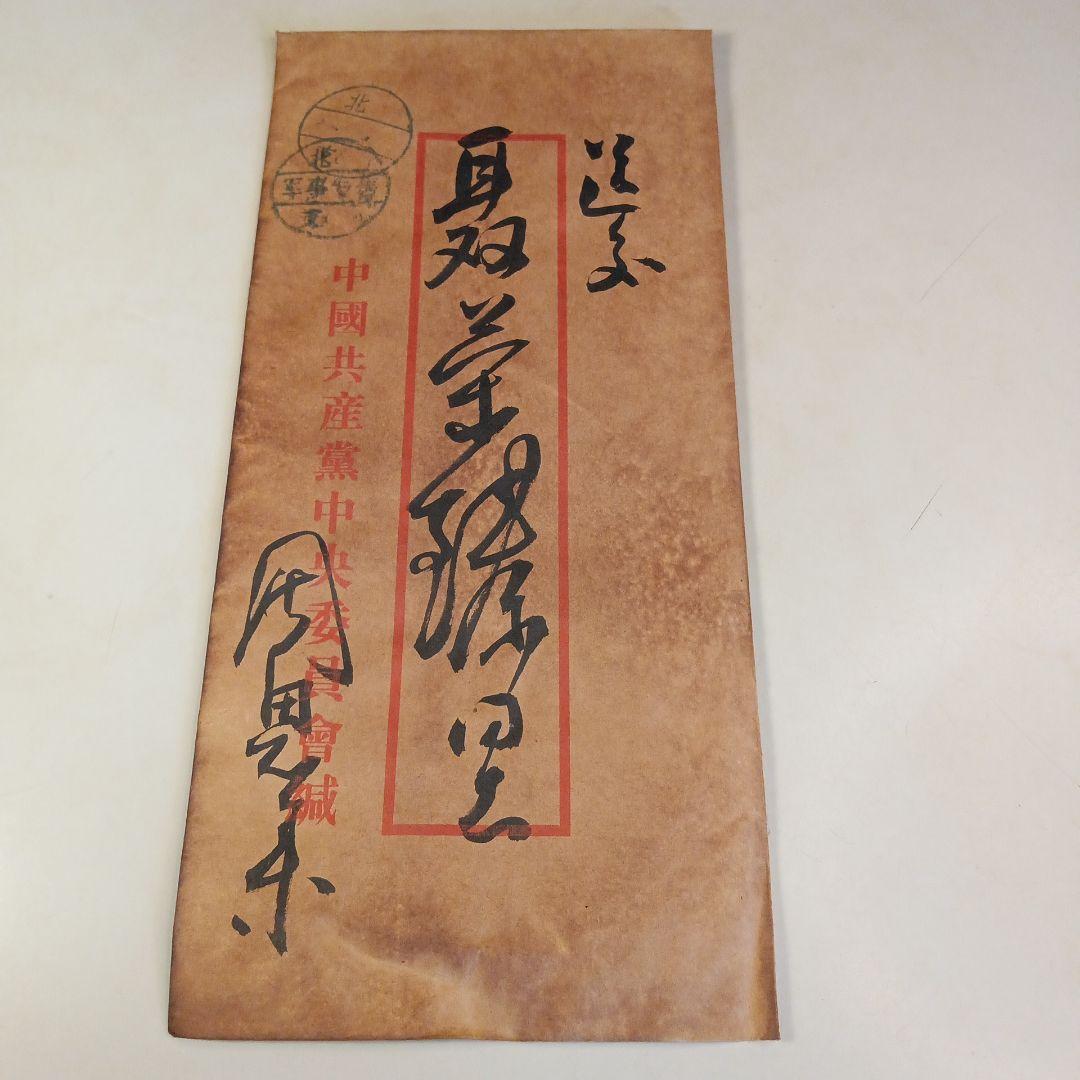 送交
聂荣臻同志
中國共産黨中央委員會緘
周恩来
北
北
軍事